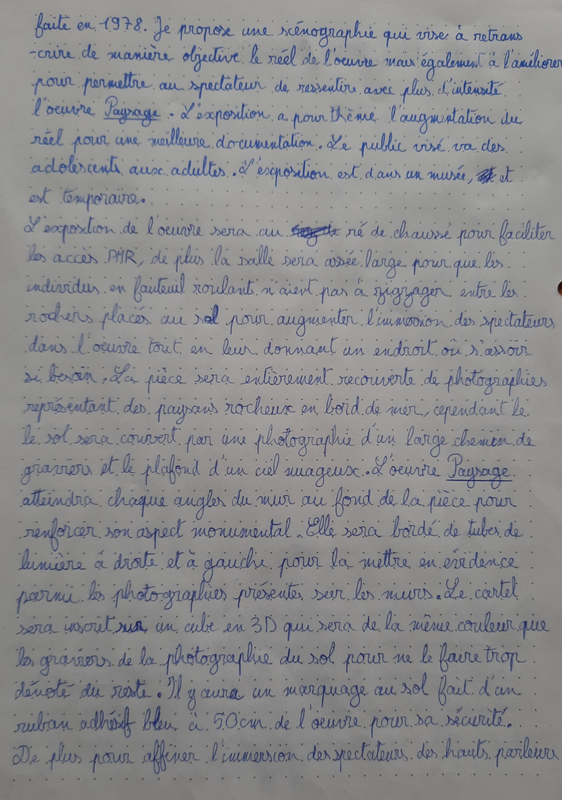 faite en 1978. Je propose une scénographie qui vise à retrans
-crire de manière objective le réel de l'oeuvre mais également à l'améliorer
pour permettre au spectateur de ressentire avec plus d'intensité
l'oeuvre Paysage. L'exposition a pour thème l'augmentation du
réel pour une meilleure documentation. Le public visé va des
adolescents aux adultes. L'exposition est dans un musée, et
est temporaire.
L'exposition de l'oeuvre sera au ré de chaussé pour faciliter
les accès PMR, de plus la salle sera assée large pour que les
individus en fauteuil roulant n'aient pas à zigzager entre les
rochers placés au sol pour augmenter l'immersion des spectateurs
dans l'oeuvre tout en leur donnant un endroit où s'assoir
si besoin. La pièce sera entièrement recouverte de photographies
représentant des paysans rocheux en bord de mer, cependant le
le sol sera couvert par une photographie d'un large chemin de
graviers et le plafond d'un ciel nuageux. L'oeuvre Paysage
atteindra chaque angles du mur au fond de la pièce pour
renforcer son aspect monumental. Elle sera bordé de tubes de
lumière à droite et à gauche pour la mettre en évidence
parmi les photographies présentes sur les murs. Le cartel
sera inscrit sur un cube en 3D qui sera de la même couleur que
les graviers de la photographie du sol pour ne le faire trop
dénoté du reste. Il y aura un marquage au sol fait d'un
ruban adhésif bleu à 50cm de l'oeuvre pour sa sécurité.
De plus pour affiner l'immersion des spectateurs des hauts parleurs